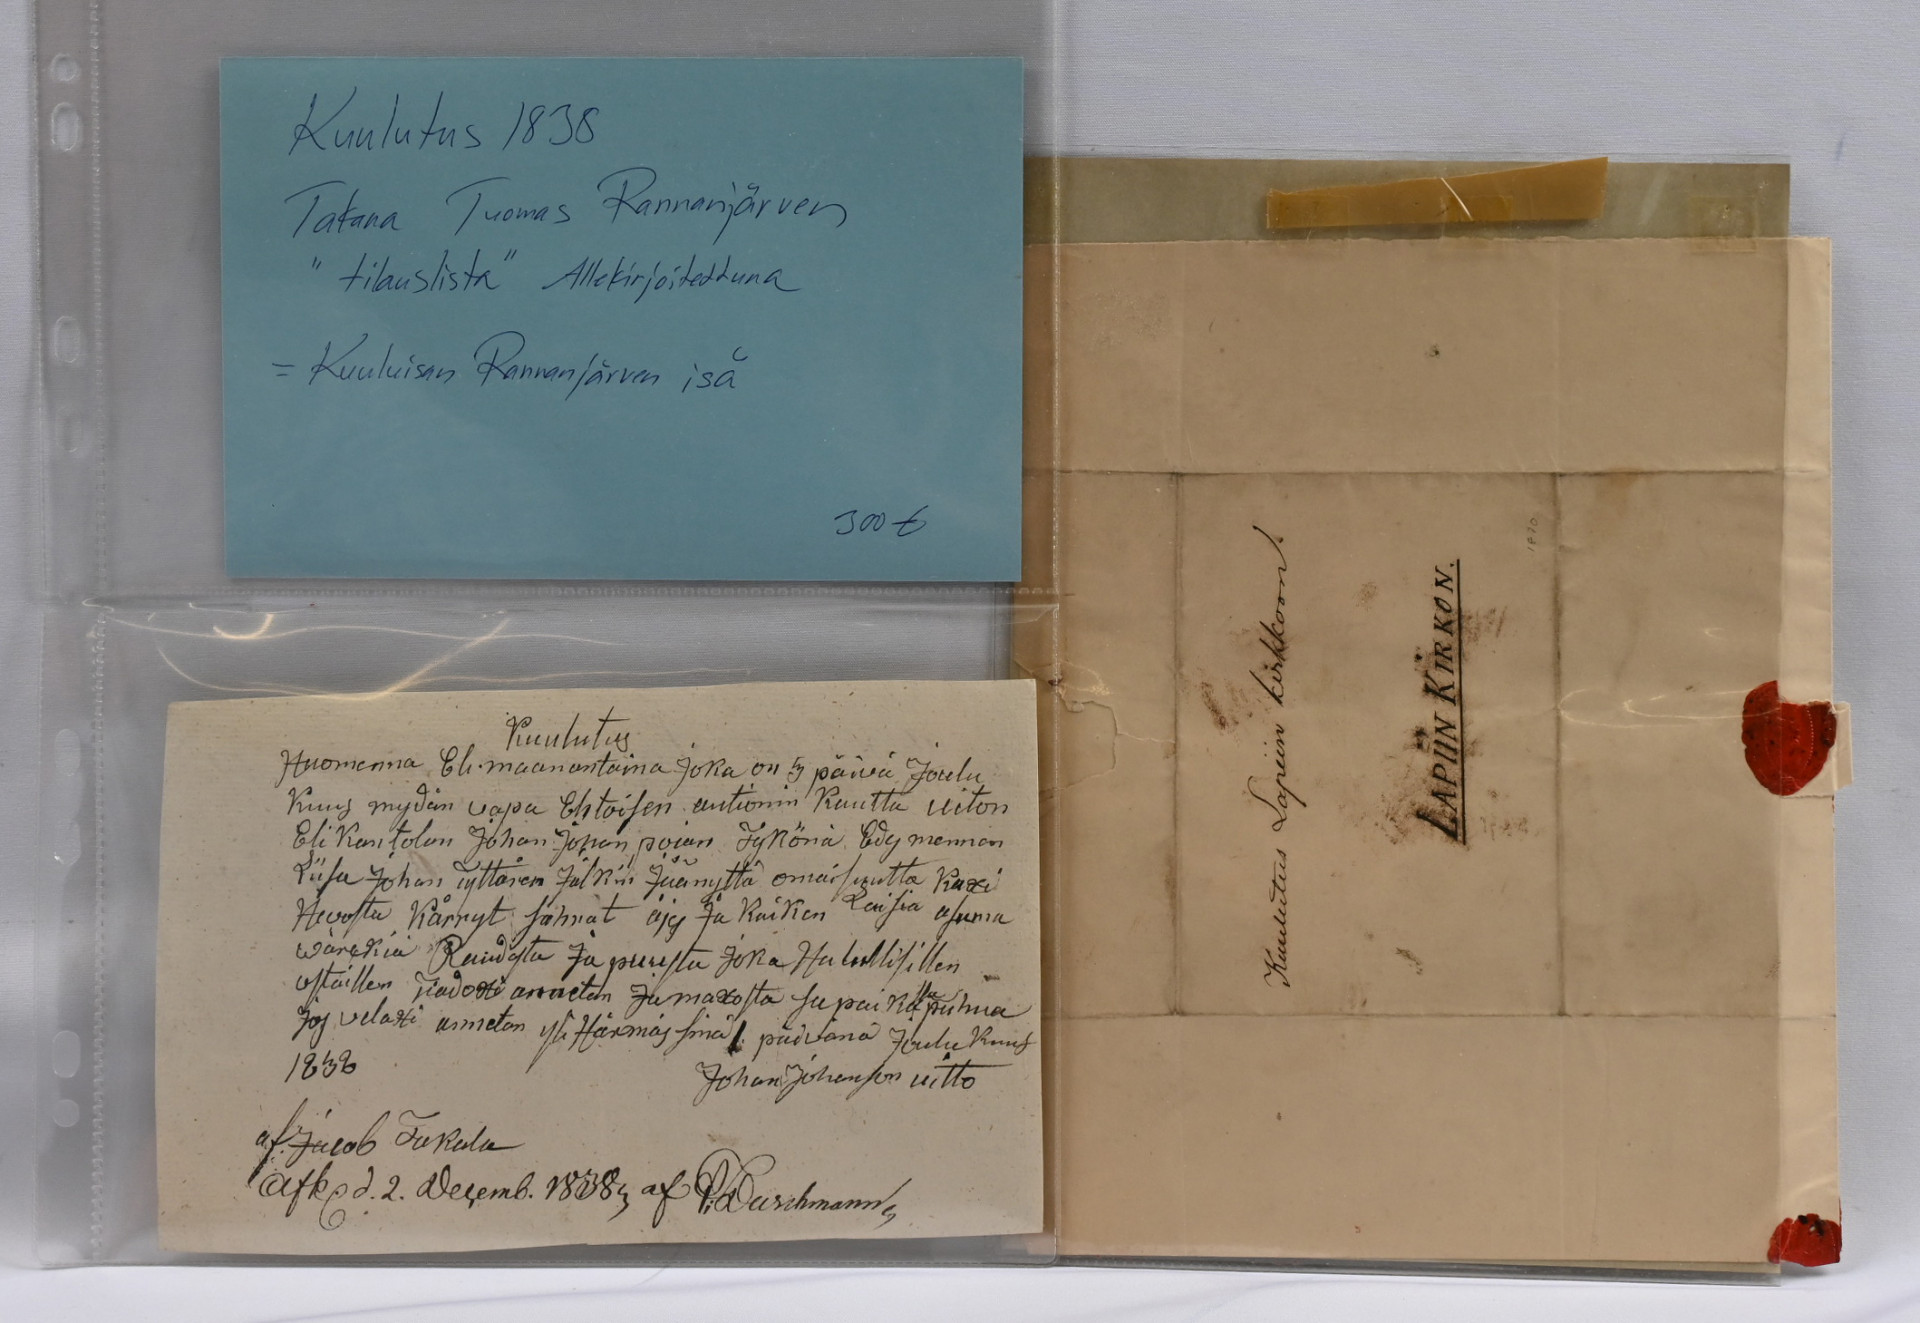 Kuulutus 1838
Takana Tuomas Rannanjärven
"tilauslista" Allekirjoitettuna
= Kuuluisan Rannanjärven isä
300 €
Kuulutus
Huomenna Eli maanantaina joka on 3 päivä Joulu
Kuus mydän vapa Ehtoisen autionin Kautta uiton
Eli Kantolan Johan Johan poian Tykönä Edes mennen
Liisa Johan Tyttären Jälkin Jäänyttä omaisuutta Kaxi
Hevosta Kärryt sahrat äjes Ja Kaiken Laisia asuma
wärckiä Raudasta Ja puusta Joka Halullisillen
ostaillen Tiadoxi annetan Ja maxosta su paikalla puhua
Jos velaxi annetan yli Härmäs sinä 1. päivänä Joulu Kuus
1838
Johan Johanson uitto
af. Jacob Takala
Afk. d. 2. Decemb. 1838, af
Kuulutus Lapiin kirkkoon.
LAPIIN KIRKON.
1870